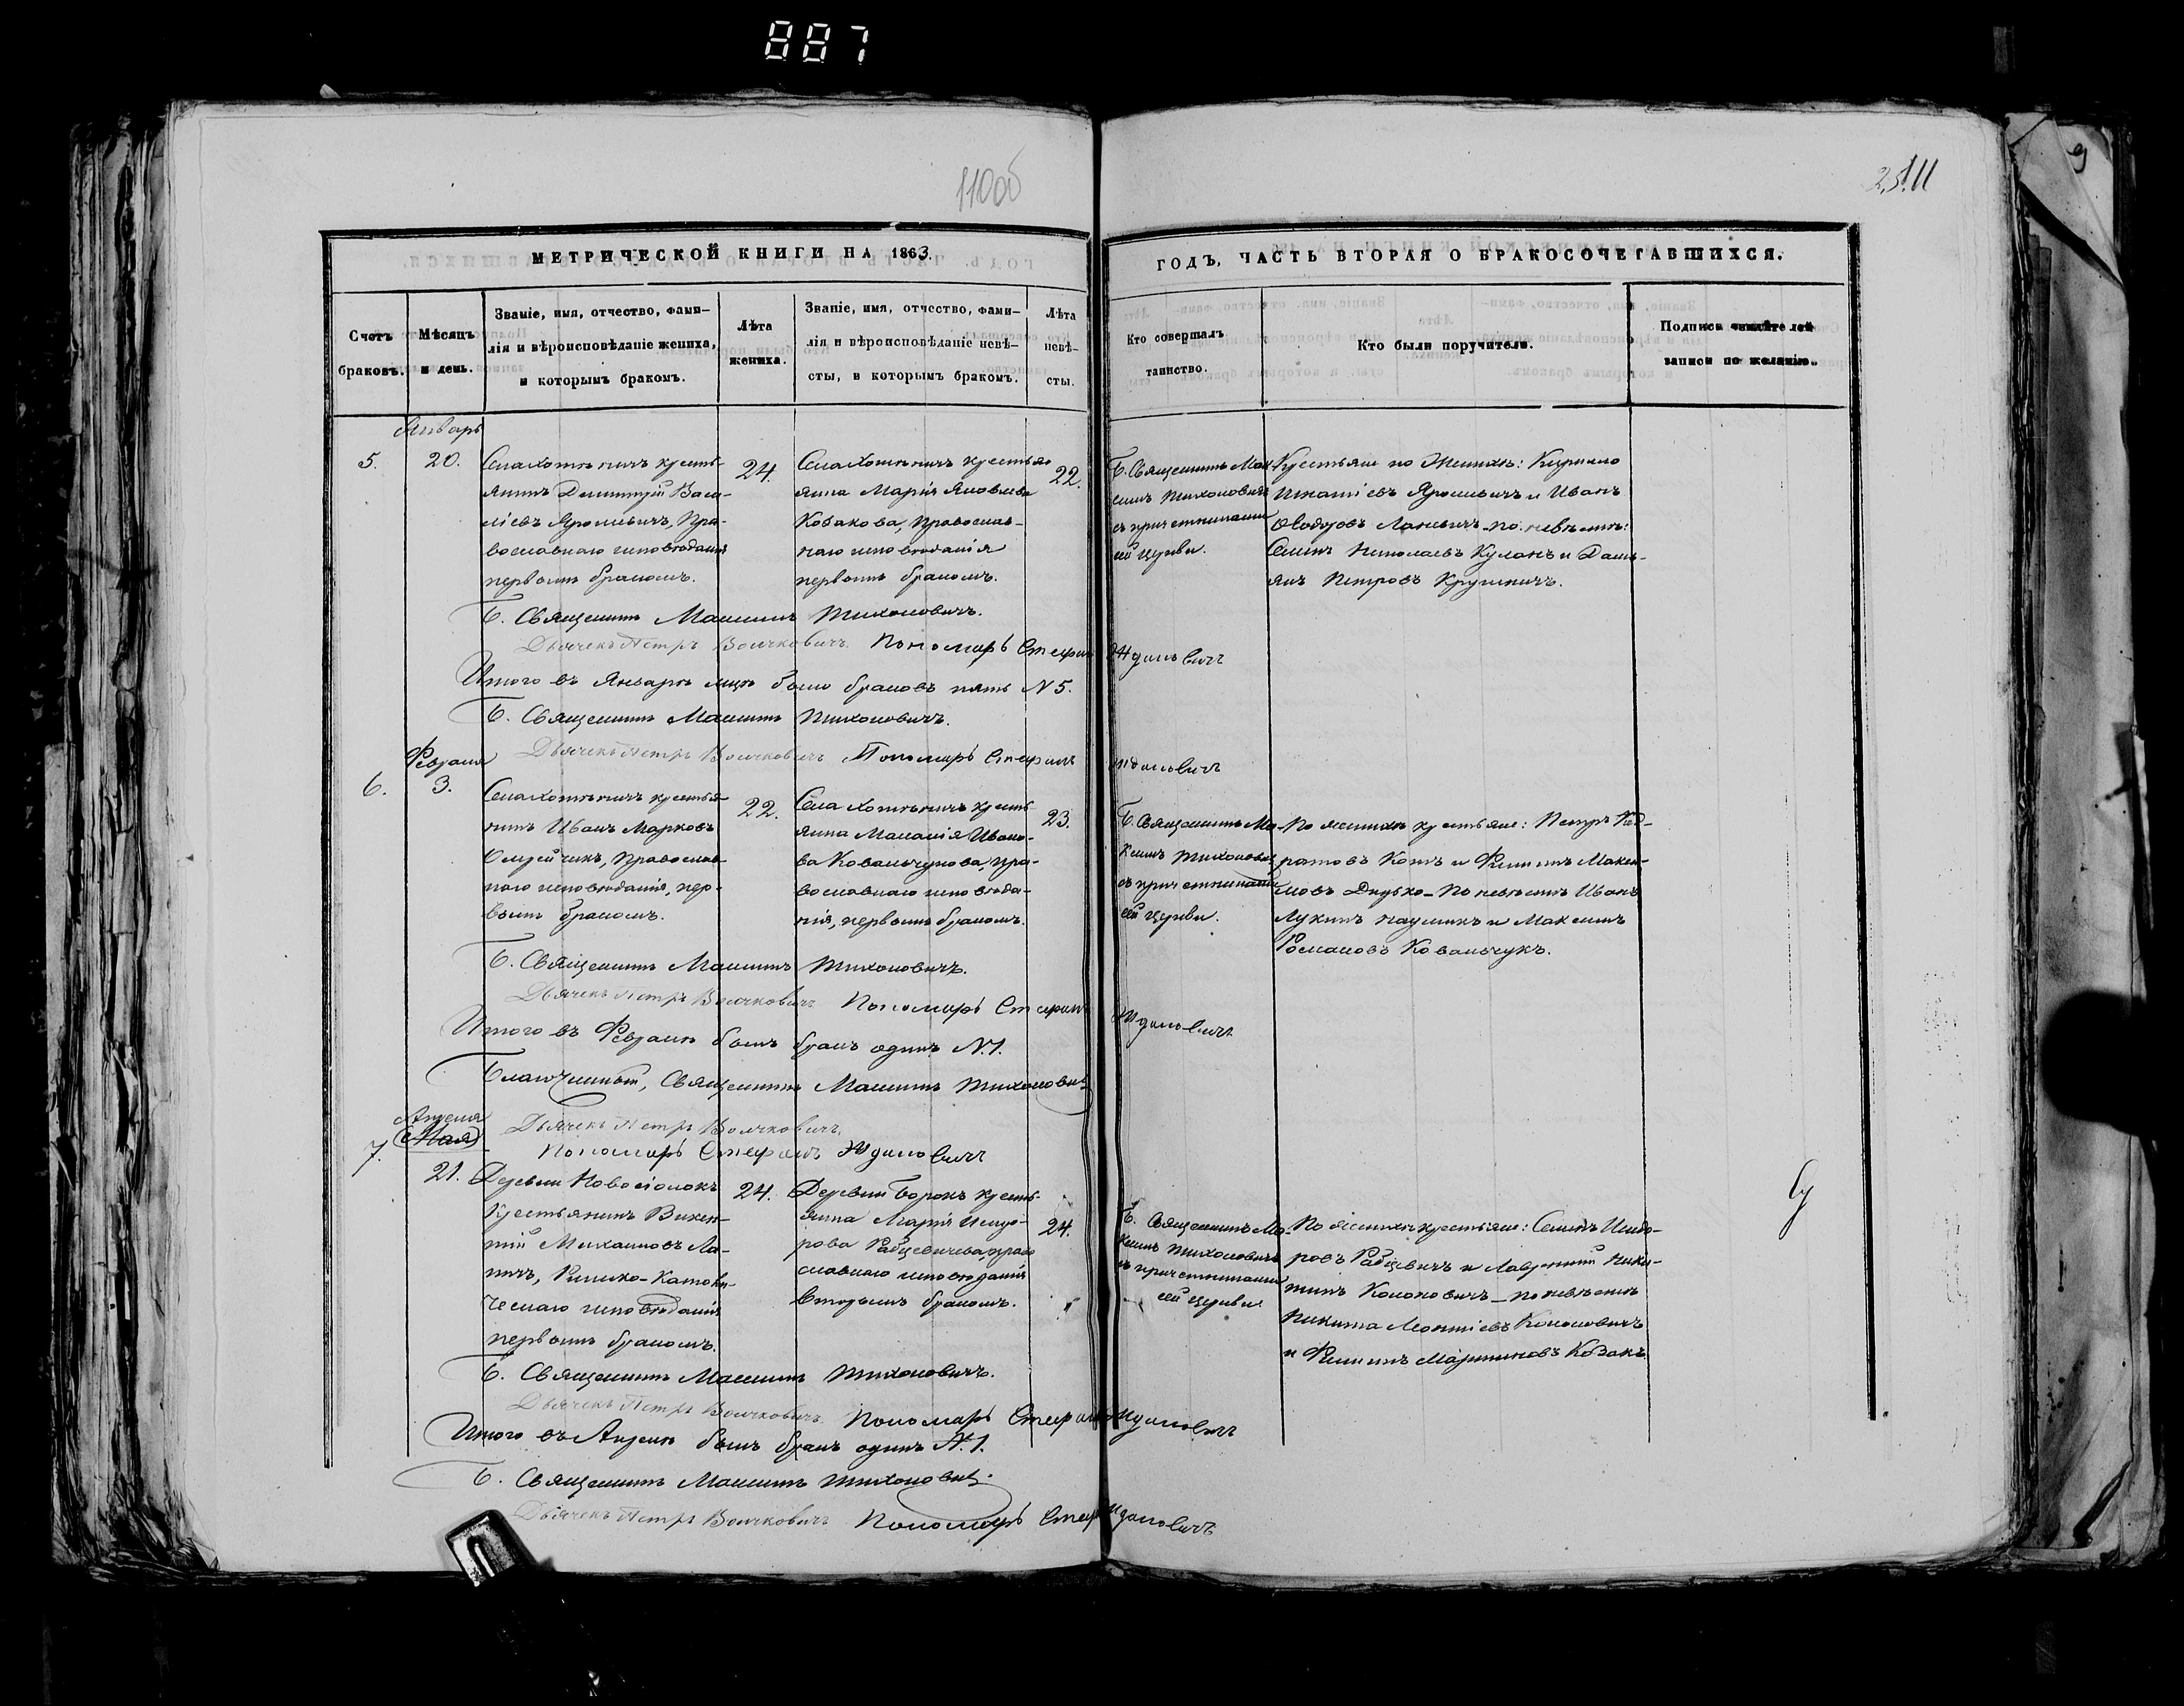 887
110об
МЕТРИЧЕСКОЙ КНИГИ НА 1863.
ГОДЪ, ЧАСТЬ ВТОРАЯ О БРАКОСОЧЕТАВШИХСЯ.
Счетъ браковъ.
Мѣсяцъ и день.
Званіе, имя, отчество, фами-
лія и вѣроисповѣданіе жениха,
и которымъ бракомъ.
Лѣта
жениха.
Званіе, имя, отчество, фами-
лія и вѣроисповѣданіе невѣ-
сты, и которымъ бракомъ.
Лѣта
невѣ-
сты.
Кто совершалъ
таинство.
Кто были поручители.
Подписи
записи по желанію.
Январь
5.
20.
Села Хотыничъ кресть-
янинъ Димитрій Васи-
ліевъ Ярошевичъ, Пра-
вославнаго исповѣданія
первымъ бракомъ.
24.
Села Хотыничъ крестья
янка Марія Яковлева
Козакова, Православ-
наго исповѣданія
первымъ бракомъ.
22.
Б. Священникъ Мак-
симъ Тихоновичъ
съ причетниками
сей церкви.
Крестьяне по Женихѣ: Кирилло
Игнатіевъ Ярошевичъ и Иванъ
Ѳеодоровъ Ланевичъ по невѣстѣ:
Семенъ Николаевъ Куланъ и Дамі-
янъ Петровъ
Б. Священникъ Максимъ Тихоновичъ.
Дьячекъ Петръ Волчковичъ. Пономарь Стефанъ Ждановичъ
Итого въ Январѣ мцѣ было браковъ пять N 5.
Б. Священникъ Максимъ Тихоновичъ.
Дьячекъ Петръ Волчковичъ Пономарь Стефанъ Ждановичъ
Февраля
6.
3.
Села Хотыничъ крестья-
нинъ Иванъ Марковъ
православ-
наго исповѣданія, пер-
вымъ бракомъ.
22.
Села Хотыничъ кресть
янка Маланія Ивано-
ва Ковальчукова, пра-
вославнаго исповѣда-
нія, первымъ бракомъ.
23.
Б. Священникъ Ма-
ксимъ Тихоновичъ
съ причетниками
сей церкви.
По женихѣ крестьяне: Петръ Код-
ратовъ Котъ и Филиппъ Макси-
мовъ Дидько - По невѣстѣ Иванъ
Лукинъ Наумикъ и Максимъ
Романовъ Ковальчукъ.
Б. Священникъ Максимъ Тихоновичъ.
Дьячекъ Петръ Волчковичъ Пономарь Стефанъ Ждановичъ
Итого въ Февралѣ былъ бракъ одинъ N. 1.
Благочинный, Священникъ Максимъ Тихоновичъ
Дьячекъ Петръ Волчковичъ.
Пономарь Стефанъ Ждановичъ
Апреля
(Мая)
7.
21.
Деревни Новосіолокъ
крестьянинъ Викен-
тій Михаиловъ Ла-
пичъ, Римско-Католи-
ческаго исповѣданія
первымъ бракомъ.
24.
Деревни Борокъ кресть-
янка Марія Исидо-
рова Рабцевичева, право
славнаго исповѣданія
вторымъ бракомъ.
24.
Б. Священникъ Ма-
ксимъ Тихоновичъ
съ причетниками
сей церкви
По женихѣ крестьяне: Семенъ Исидо-
ровъ Рабцевичъ и Лаврентій Ники-
тинъ Кононовичъ - по невѣстѣ
Никита Леонтіевъ Кононовичъ
и Филиппъ Мартиновъ Козакъ.
Б. Священникъ Максимъ Тихоновичъ.
Дьячекъ Петръ Волчковичъ. Пономарь Стефанъ Ждановичъ
Итого въ Апрелѣ былъ бракъ одинъ N. 1.
Б. Священникъ Максимъ Тихоновичъ.
Дьячекъ Петръ Волчковичъ Пономарь Стеф Ждановичъ